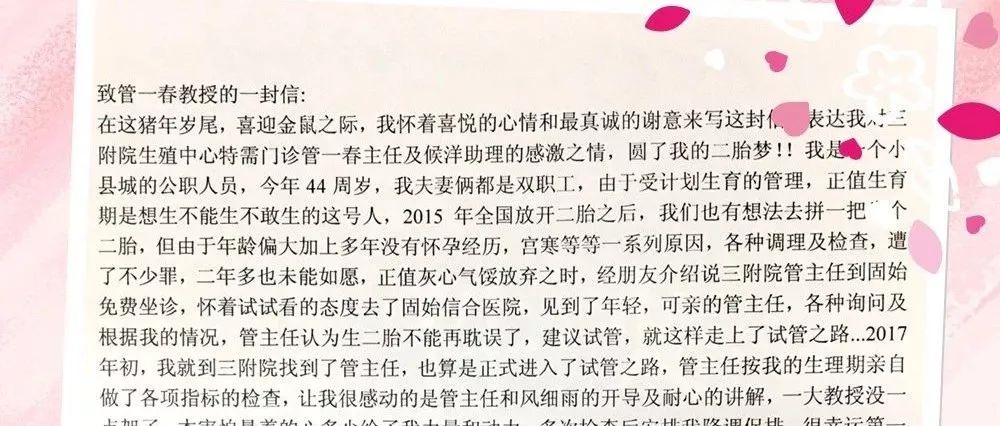 致管一春教授的一封信:
在这猪年岁尾，喜迎金鼠之际，我怀着喜悦的心情和最真诚的谢意来写这封信 表达我对三
附院生殖中心特需门诊管一春主任及候洋助理的感激之情，圆了我的二胎梦!! 我是一个小
县城的公职人员，今年 44 周岁，我夫妻俩都是双职工，由于受计划生育的管理，正值生育
期是想生不能生不敢生的这号人，2015 年全国放开二胎之后，我们也有想法去拼一把 个
二胎，但由于年龄偏大加上多年没有怀孕经历，宫寒等等一系列原因，各种调理及检查，遭
了不少罪，二年多也未能如愿，正值灰心气馁放弃之时，经朋友介绍说三附院管主任到固始
免费坐诊，怀着试试看的态度去了固始信合医院，见到了年轻，可亲的管主任，各种询问及
根据我的情况，管主任认为生二胎不能再耽误了，建议试管，就这样走上了试管之路...2017
年初，我就到三附院找到了管主任，也算是正式进入了试管之路，管主任按我的生理期亲自
做了各项指标的检查，让我很感动的是管主任和风细雨的开导及耐心的讲解，一大教授没一